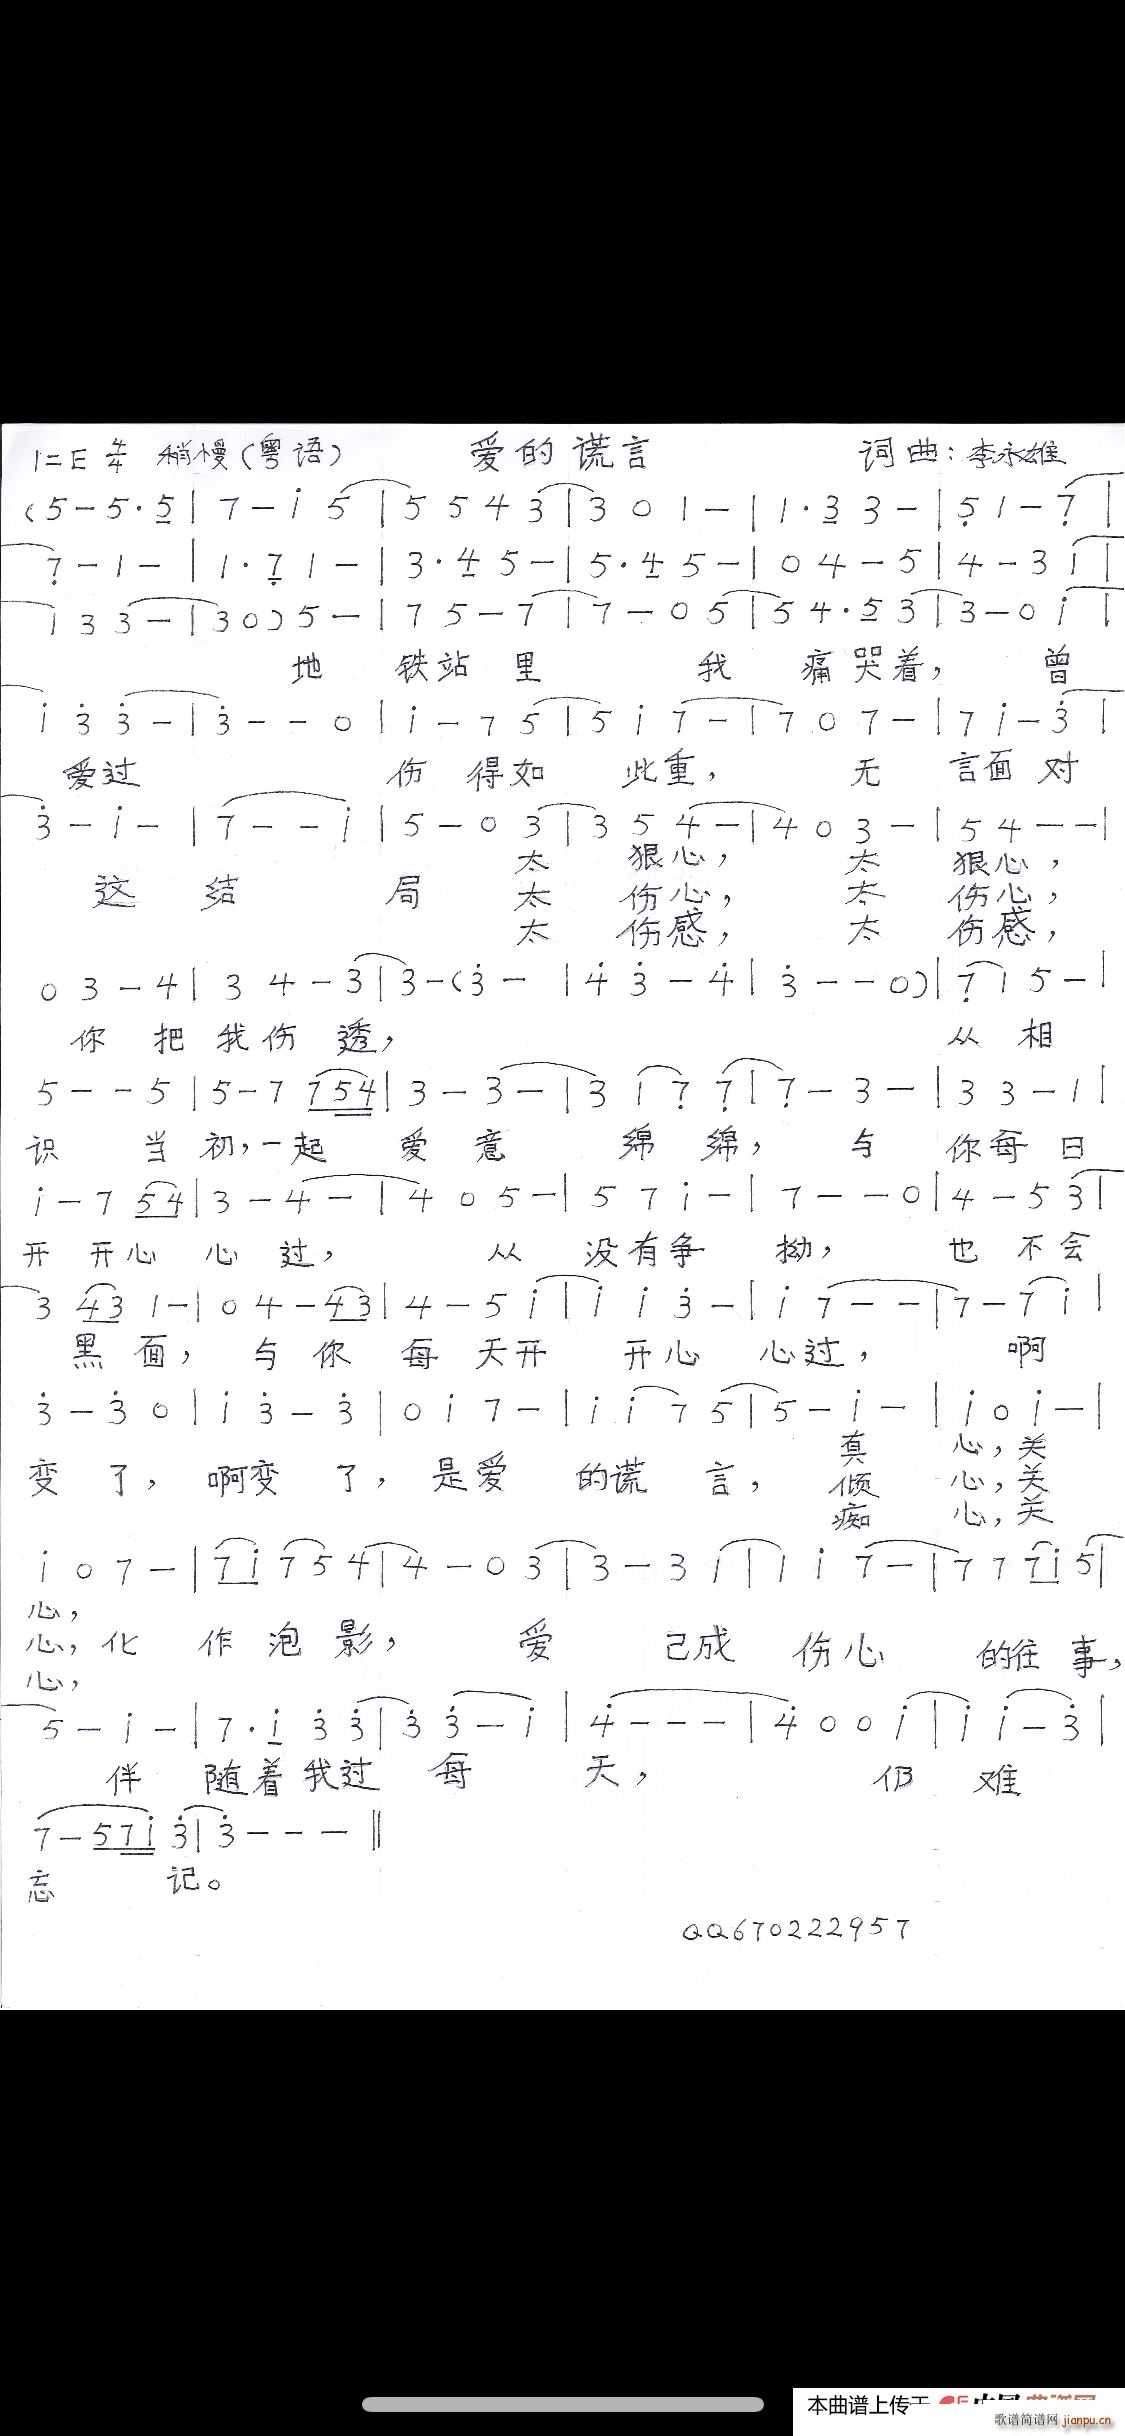 1=E 4/4 稍慢(粤语) 爱的谎言 词曲:李永雄
(5-5·5|7-i5|5543|301-|1·33-|51-7|
7-1-|1·71-|3·45-|5·45-|04-5|4-3i|
i33-|30)5-|75-7|7-05|54·53|3-0i|
地 铁站里 我 痛哭着, 曾
i33-|3--0|i-75|5i7-|707-|7i-3|
爱过 伤得如 此重, 无 言面对
3-i-|7--i|5-03|354-|403-|54--|
太 狠心, 太 狠心,
这 结 局 太 伤心, 太 伤心,
太 伤感, 太 伤感,
03-4|34-3|3-(3-|43-4|3--0)|715-|
你把我伤透, 从相
5--5|5-7754|3-3-|3177|7-3-|33-1|
识 当初,一起 爱意 绵绵, 与 你每日
i-754|3-4-|405-|57i-|7--0|4-53|
开开心心过, 从 没有争拗, 也不会
3431-|04-43|4-5i|ii3-|i7--|7-7i|
黑面, 与你每天开 开心心过, 啊
3-30|i3-3|0i7-|ii75|5-i-|i0i-|
真 心,关
变了, 啊变了, 是爱 的谎言, 倾 心,关
痴 心,关
i07-|7i754|4-03|3-31|1i7-|777i5|
心,
心,化 作泡影, 爱 已成 伤心 的往事,
心,
5-i-|7·i33|33-i|4---|400i|ii-3|
伴 随着我过 每 天, 仍 难
7-57i3|3---‖
忘 记。
QQ670222957
本曲谱上传于
歌谱简谱网 jianpu.cn